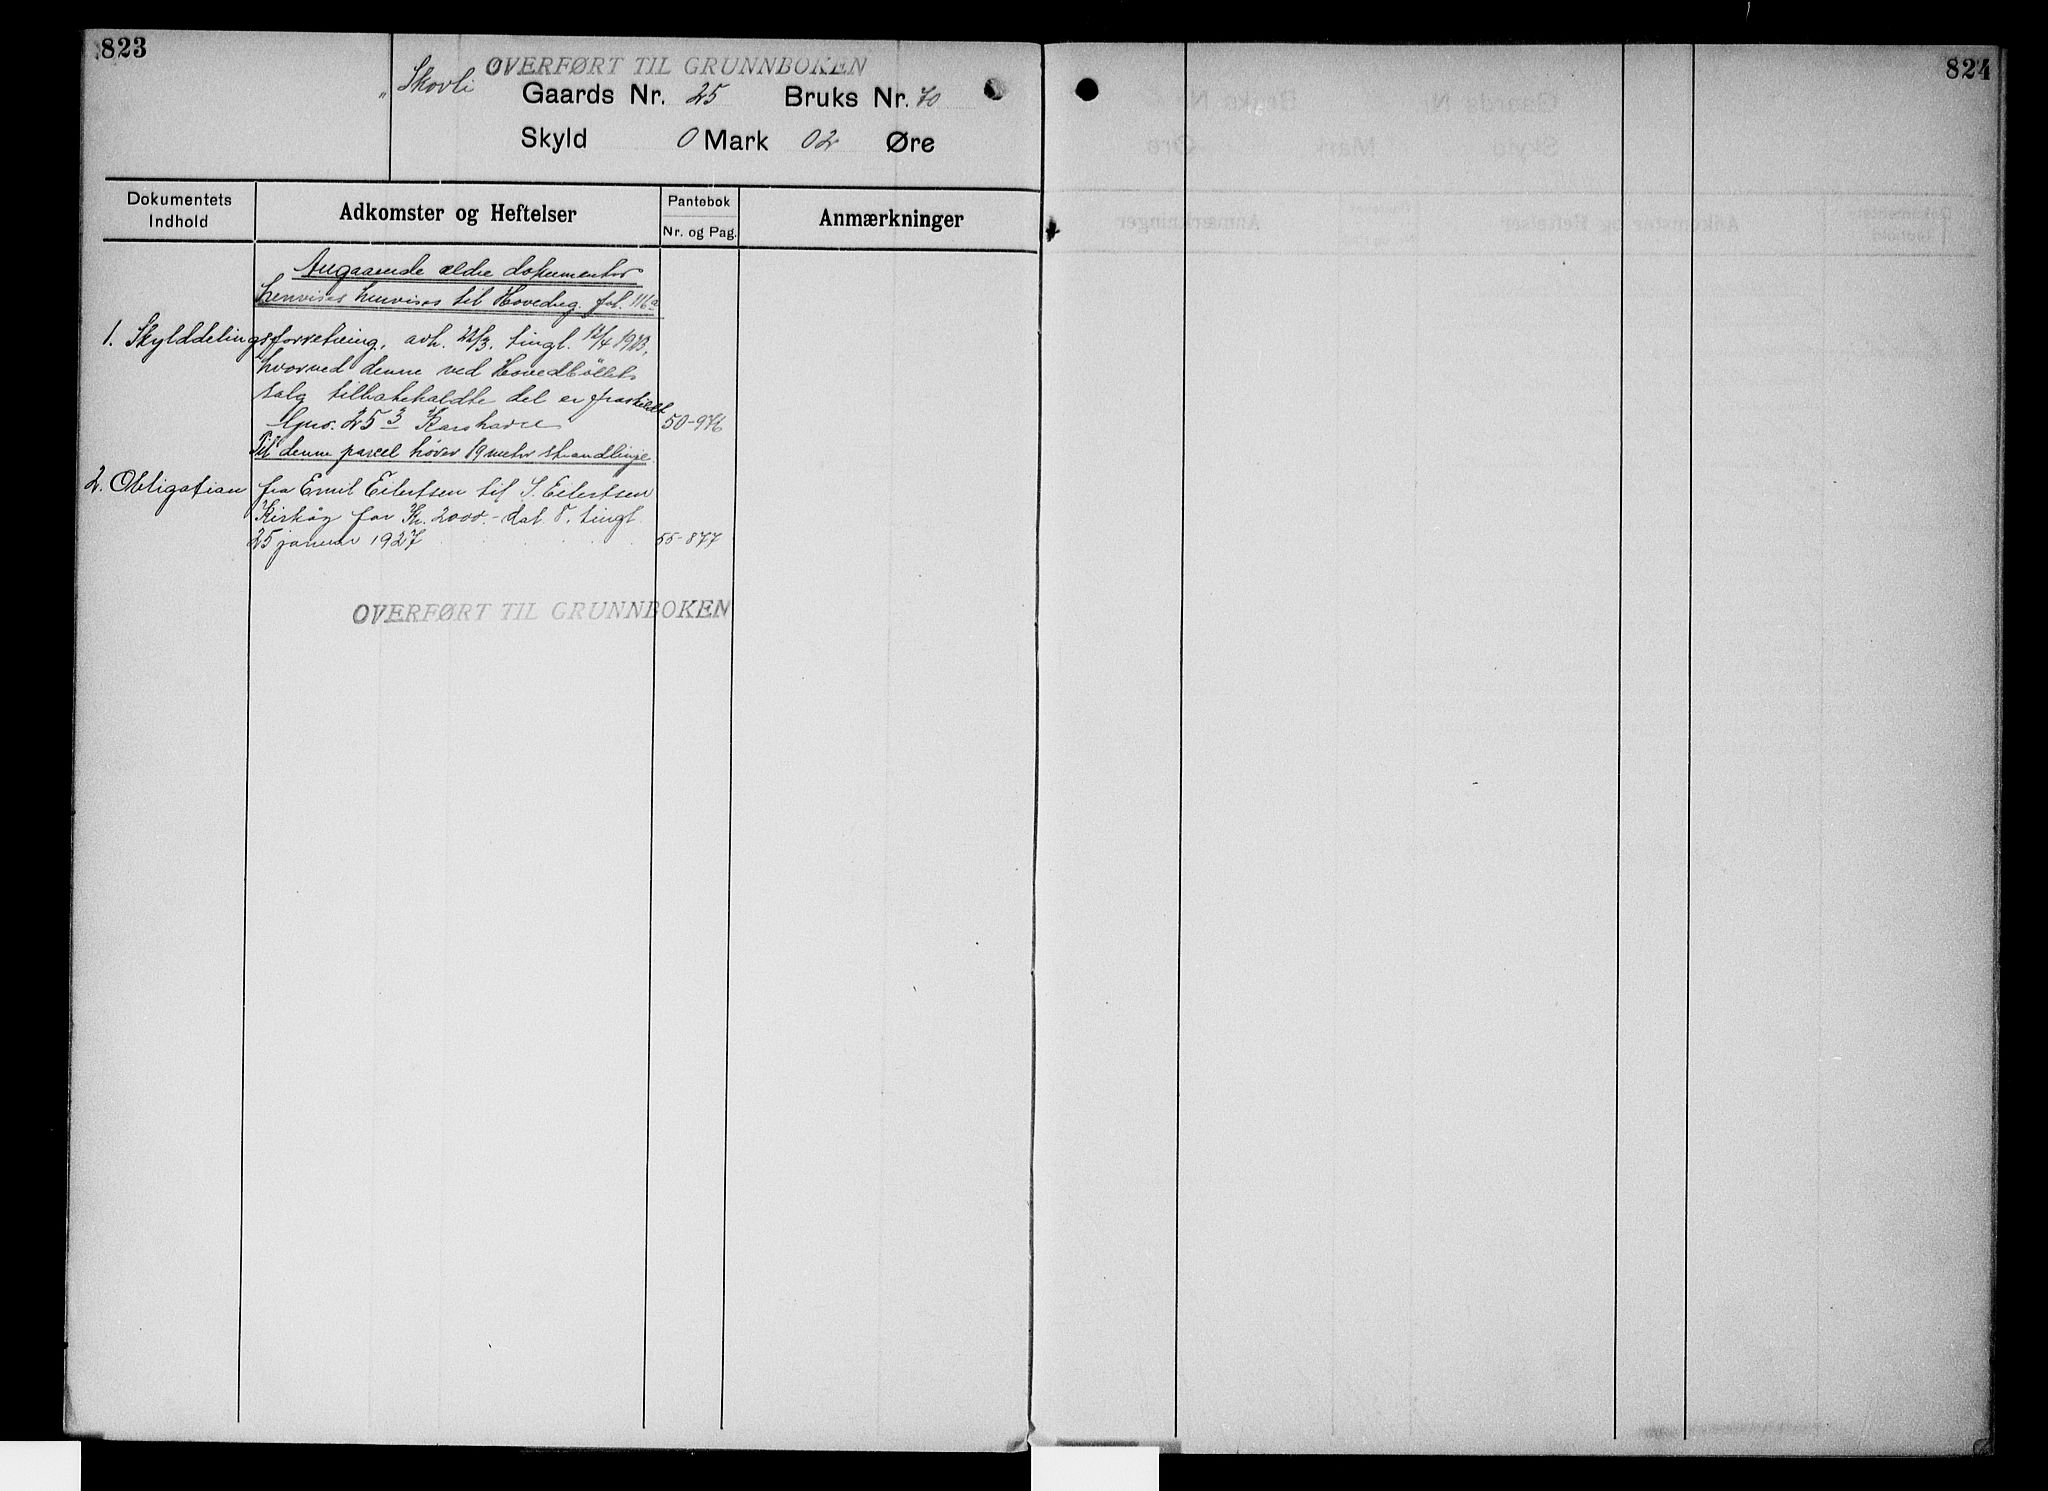 823
OVERFØRT TIL GRUNNBOKEN
„Skovli
Gaards Nr. 25 Bruks Nr. 70
Skyld 0 Mark 02 Øre
Dokumentets Indhold
Adkomster og Heftelser
Pantebok
Nr. og Pag.
Anmærkninger
Angaaende ældre dokumenter
henvises henvises til Hovedreg. fol. 116a
1. Skylddelingsforretning, avh. 22/3, tingl. 12/4 1923,
hvorved denne ved Hovedbölets
salg tilbakeholdte del er fraskilt
Gnr. 25 3 50-976
Til denne parcel hører 19 meter strandlinje
2. Obligation fra Emil Eilertsen til S. Eilertsen
for Kr. 2000.- dat 8. tingl.
25 januar 1927 55-877
OVERFØRT TIL GRUNNBOKEN
824